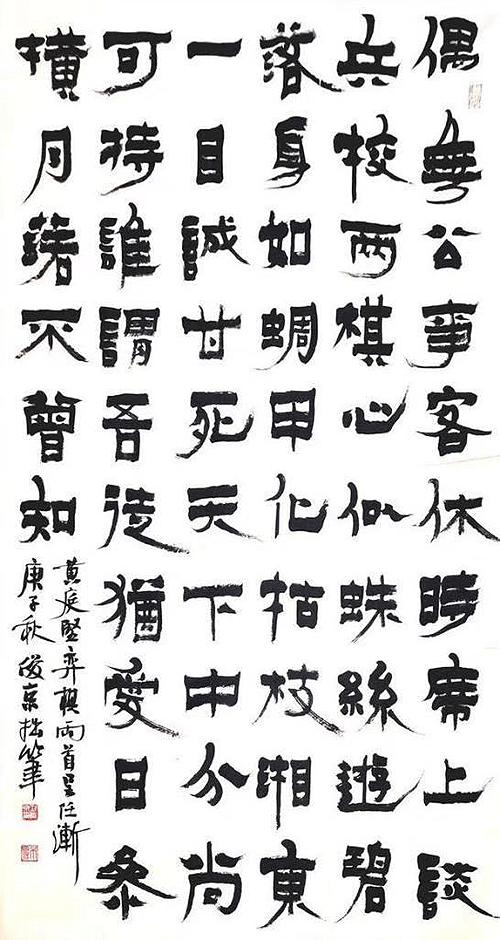 偶無公事客休時席上談
兵校两棋心似蛛絲遊碧
落身如蜩甲化枯枝湘東
一目誠甘死天下中分尚
可持誰謂吾徒猶愛日叅
橫月落不曾知
黄庭堅弈棋兩首呈任漸
庚子秋俊京拙筆